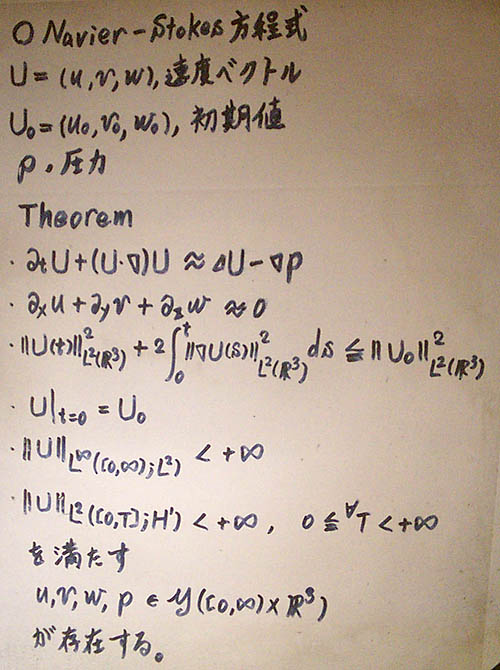 ○ Navier-Stokes 方程式
U=(u,v,w), 速度ベクトル
U₀=(u₀,v₀,w₀), 初期値
p . 圧力
Theorem
・∂tU+(U・∇)U ≈ ΔU-∇p
・∂xu+∂yv+∂zw ≈ 0
・‖U(t)‖²_{L²(ℝ³)} + 2∫₀ᵗ‖∇U(s)‖²_{L²(ℝ³)} ds ≦ ‖U₀‖²_{L²(ℝ³)}
・U|t=0 = U₀
・‖U‖_{L^∞([0,∞);L²)} < +∞
・‖U‖_{L²([0,T];H¹)} < +∞, 0≦∀T<+∞
を満たす
u,v,w,p ∈ 𝓨([0,∞)×ℝ³)
が存在する。